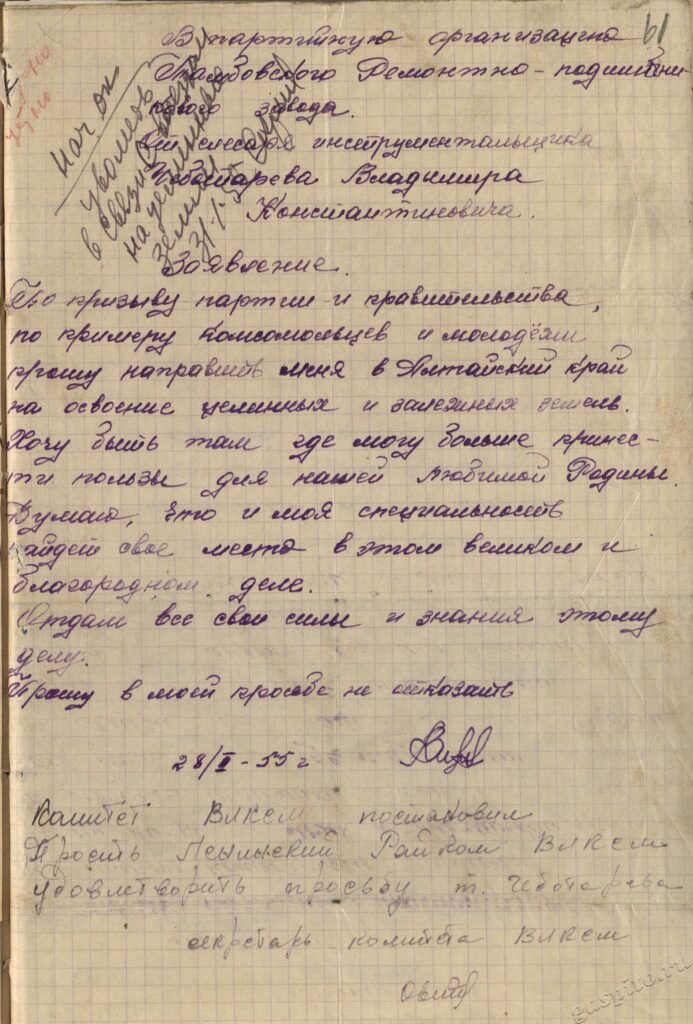 61
В партийную организацию
Тамбовского Ремонтно-подшипни-
кового завода.
От слесаря инструментальщика
Чеботарева Владимира
Константиновича.
Заявление.
По призыву партии и правительства,
по примеру комсомольцев и молодёжи
прошу направить меня в Алтайский край
на освоение целинных и залежных земель.
Хочу быть там где могу больше принес-
ти пользы для нашей любимой Родины.
Думаю, что и моя специальность
найдет свое место в этом великом и
благородном деле.
Отдам все свои силы и знания этому
делу.
Прошу в моей просьбе не отказать
28/I-55 г
Нач ок
уволить
в связи с
на целинные
земли
31/I-55
Комитет ВЛКСМ постановил
Просить Райком ВЛКСМ
удовлетворить просьбу т. Чеботарева
секретарь комитета ВЛКСМ
gaspito.ru